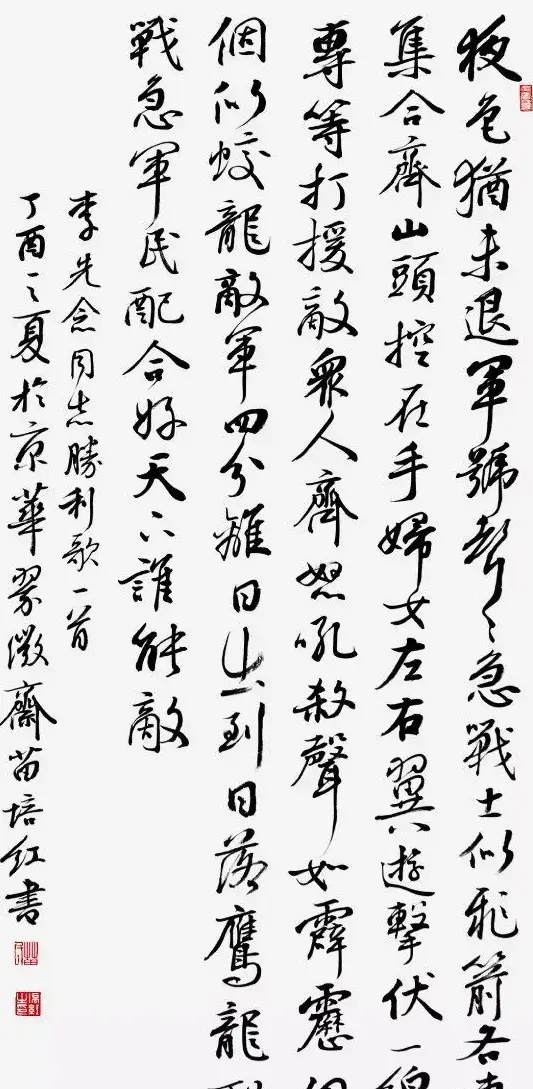 夜色猶未退軍號聲々急戰士似飛箭各
集合齊山頭控在手婦女左右翼遊擊伏一
專等打援敵衆人齊怒吼殺聲如霹靂
個似蛟龍敵軍四分離日出到日落鷹龍
戰急軍民配合好天下誰能敵
李先念同志勝利歌一首
丁酉之夏於京華翠微齋苗培紅書